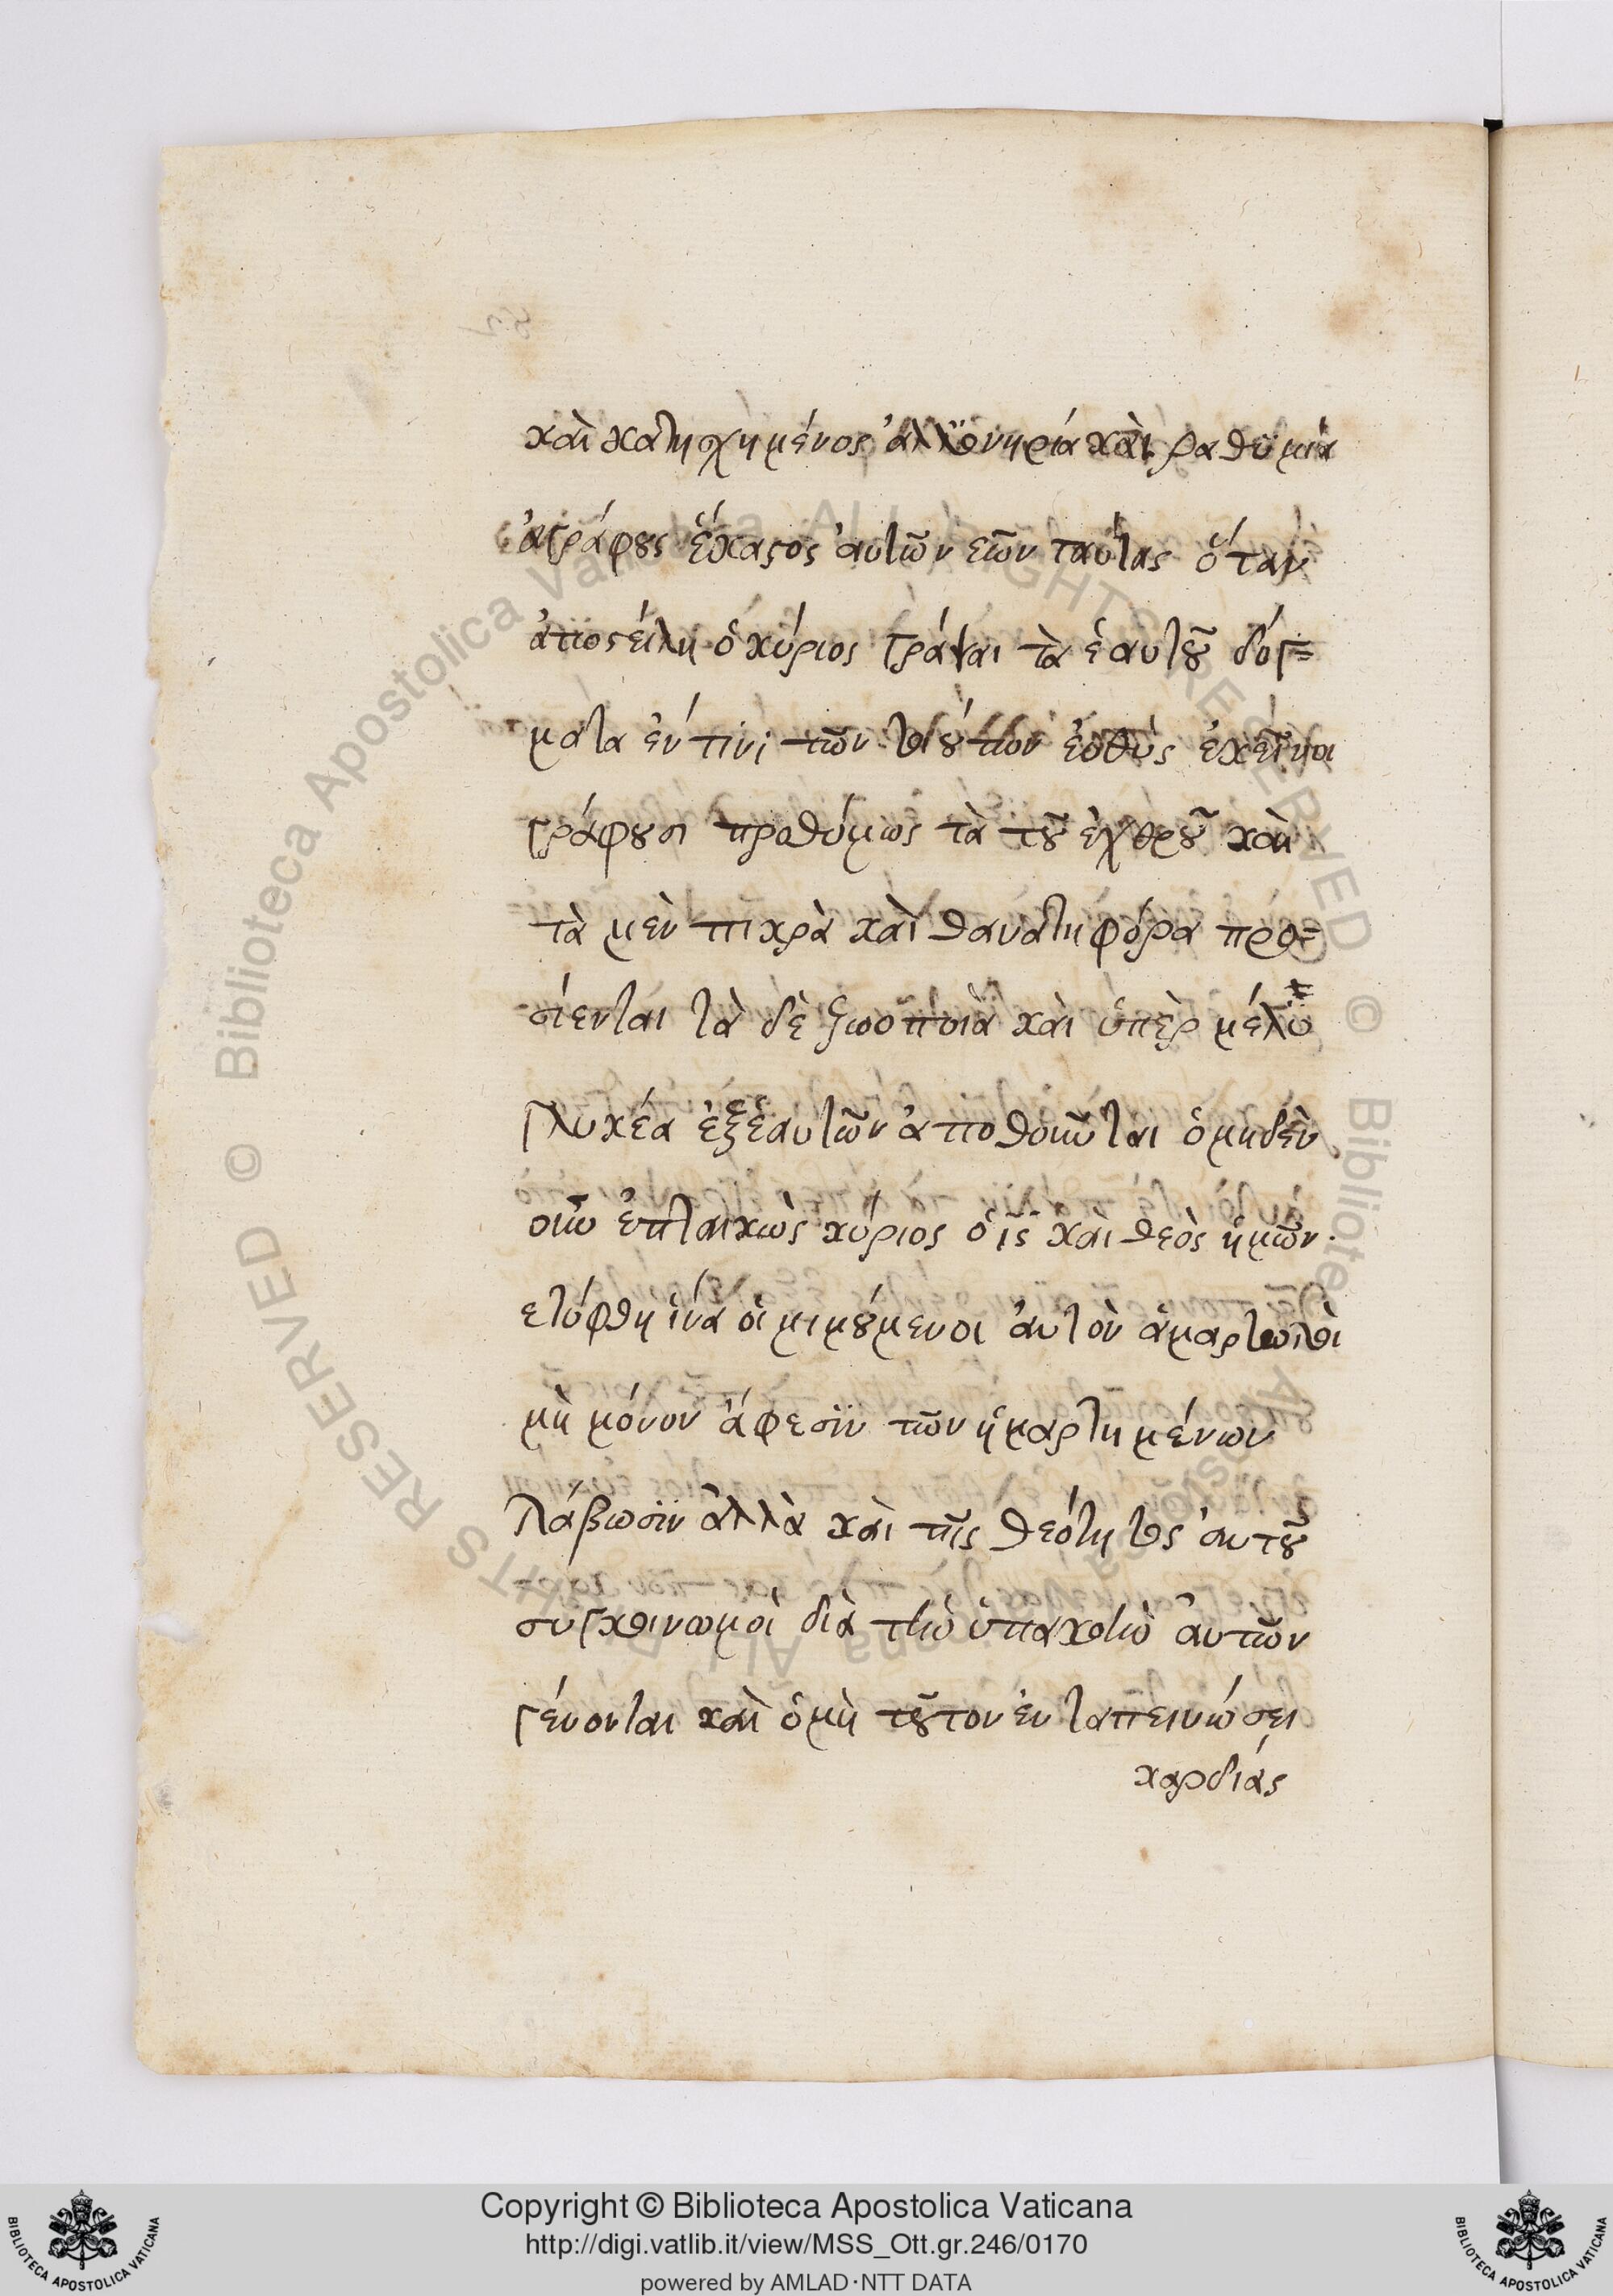 καὶ κατησχημένος ἀλλὰ πονηρία καὶ ραθυμία
ἀγράφους ἕκαστος αὐτῶν ἐῶν ταύτας ὅταν
ἀποστείλη ὁ κύριος γράψαι τὰ ἑαυτοῦ δόγ=
ματα ἐν τινι τῶν τοιούτων εὐθὺς ἐκεῖνοι
γράφουσι προθύμως τὰ τοῦ ἐχθροῦ καὶ
τὰ μὲν πικρὰ καὶ θανατηφόρα προ=
σίενται τὰ δὲ ζωοποιὰ καὶ ὑπὲρ μέλι
γλυκέα ἐξ ἑαυτῶν ἀποθοῦνται ὁ μηδὲν
οὖν ἐπταικὼς κύριος ὁ ις καὶ θεὸς ἡμῶν.
ετύφθη ἵνα οἱ μιμούμενοι αὐτὸν ἁμαρτωλοὶ
μὴ μόνον ἄφεσϊν τῶν ἡμαρτημένων
λάβωσϊν ἀλλὰ καὶ τῆς θεότητος αὐτοῦ
συγκοινωμοὶ διὰ τὴν ὑπακοὴν αὐτῶν
γένονται καὶ ὁ μὴ τοῦτον ἐν ταπεινώσει
καρδίας
Copyright © Biblioteca Apostolica Vaticana
http://digi.vatlib.it/view/MSS_Ott.gr.246/0170
powered by AMLAD·NTT DATA
BIBLIOTECA APOSTOLICA VATICANA
BIBLIOTECA APOSTOLICA VATICANA